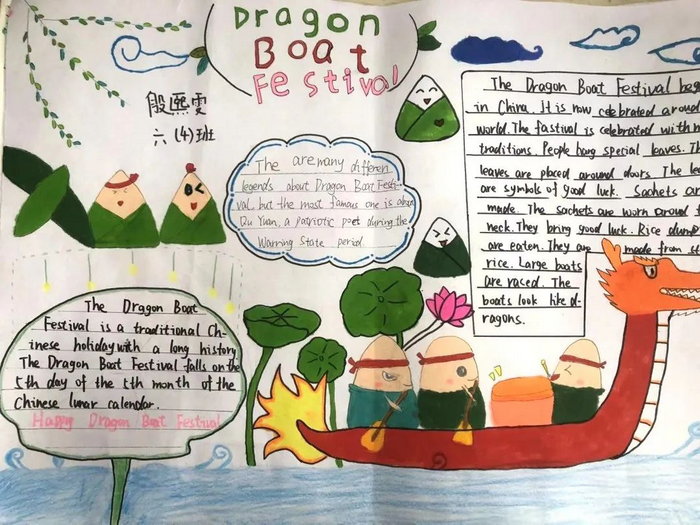 Dragon
Boat
Festival
殷熙雯
六(4)班
The are many differen
legends about Dragon Boat Festi-
val, but the most famous one is abou
Qu Yuan, a patriotic poet during the
Warring State period
The Dragon Boat Festival beg
in China. It is now celebrated aroud
world. The fastival is celebrated with m
traditions. People hang special leaves. Th
leaves are placed around doors. The lea
are symbols of good luck. Sachets a
made. The sachets are worn aroud t
neck. They bring good luck. Rice dump
are eaten. They are made from st
rice. Large boats
are raced. The
boats look like d-
ragons.
The Dragon Boat
Festival is a traditional Ch-
inese holiday with a long history.
The Dragon Boat Festival falls on the
5th day of the 5th month of the
Chinese lunar calendar.
Happy Dragon Boat Festival